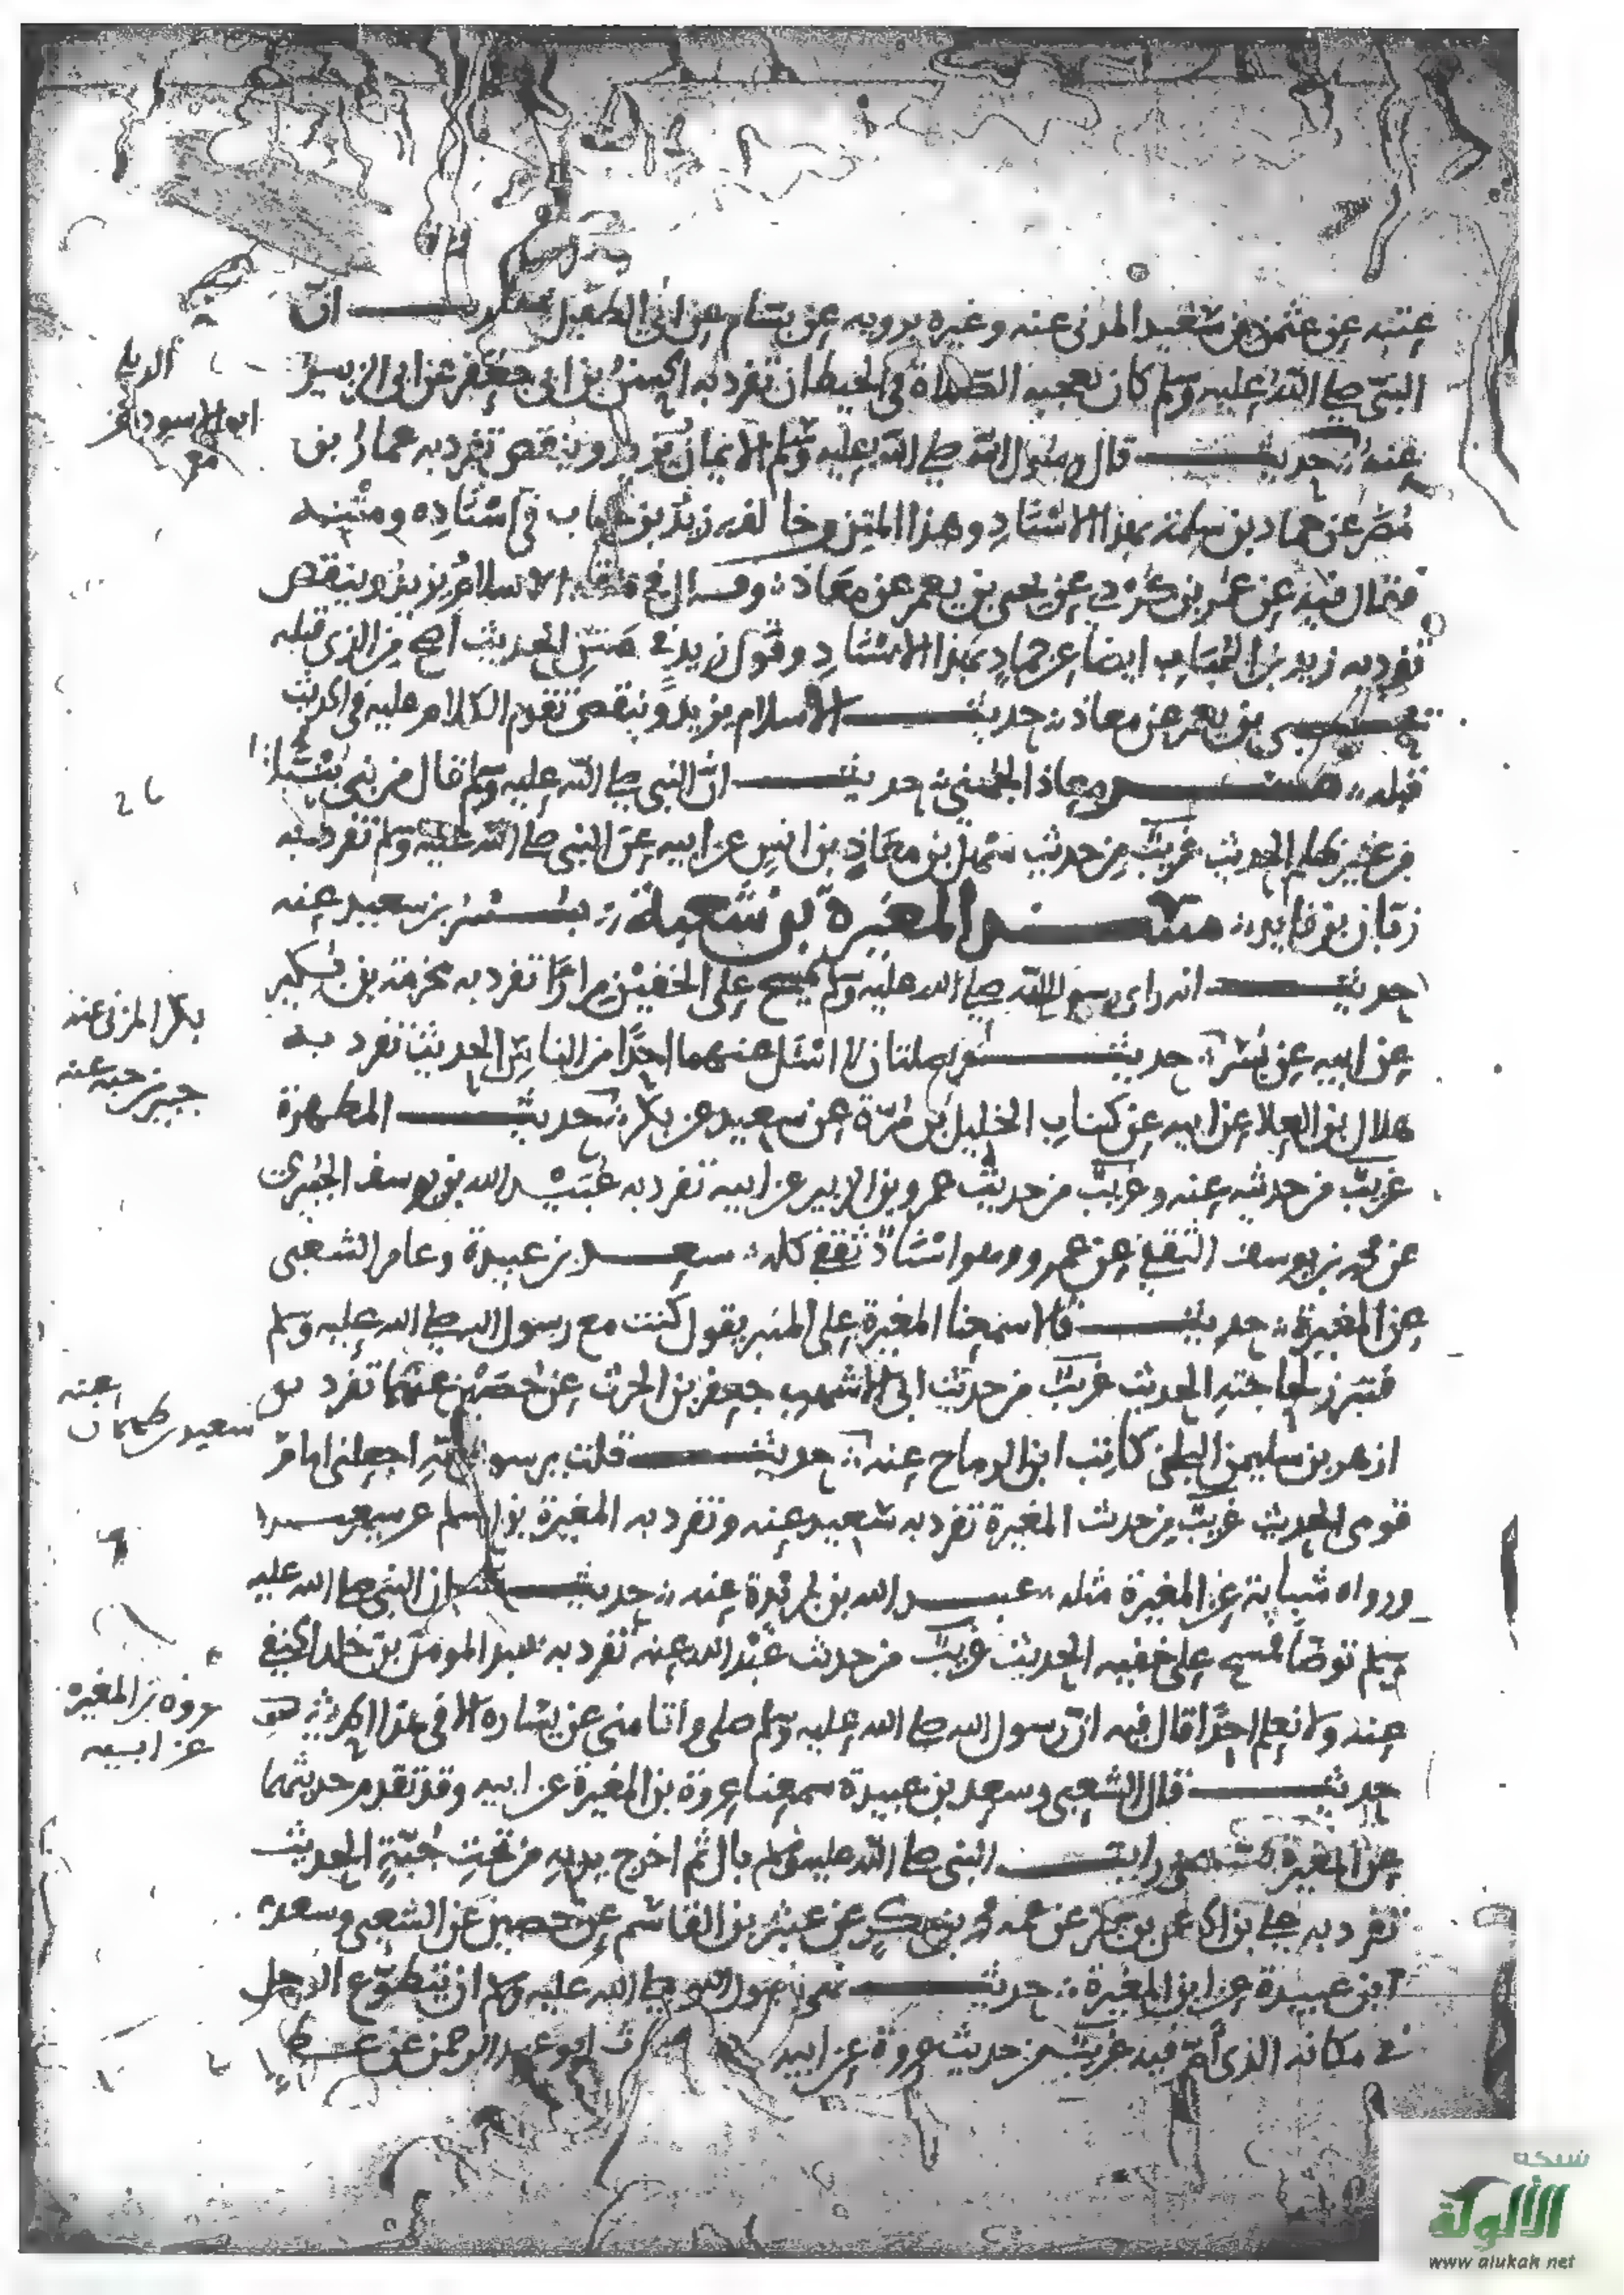 عنه عن عثمن بن سعيد المدني عنه وغيره يرويه عن بسام عن ابي الطفيل حديث ان
النبي صلى الله عليه وسلم كان يعجبه الصلاة في الحيطان تفرد به الحسن بن ابي جعفر عن ابي الزبير
عنه حديث قال رسول الله صلى الله عليه وسلم الايمان يزيد وينقص تفرد به عمار بن
مطر عن حماد بن سلمة بهذا الاسناد وهذا المتن وخالفه زيد بن حباب في اسناده ومتنه
فقال فيه عن عمر بن كردي عن يحيى بن يعمر عن معاذ وقال في متنه الاسلام يزيد وينقص
تفرد به زيد بن الحباب ايضا عن حماد بهذا الاسناد وقول زيد في متن الحديث اصح من الذي قبله
يحيى بن يعمر عن معاذ حديث الاسلام يزيد وينقص تقدم الكلام عليه في الحديث
قبله مسند معاذ الجهني حديث ان النبي صلى الله عليه وسلم قال من بنى بنيانا
من غير ظلم الحديث غريب من حديث سهل بن معاذ بن انس عن ابيه عن النبي صلى الله عليه وسلم تفرد به
زبان بن فايد مسند المغيرة بن شعبة بسر بن سعيد عنه
حديث انه راى رسول الله صلى الله عليه وسلم يمسح على الخفين مرارا تفرد به مخرمة بن بكير
عن ابيه عن بسر حديث خصلتان لا اسئل عنهما احدا من الناس الحديث تفرد به
هلال بن العلاء عن ابيه عن كتاب الخليل بن مرة عن سعيد عن بكر حديث المطهرة
غريب من حديثه عنه وغريب من حديث عمرو بن الزبير عن ابيه تفرد به عبيد الله بن يوسف الجبيري
عن محمد بن يوسف الثقفي عن عمرو وهو اسناد ثقفي كله سعد بن عبيدة وعامر الشعبي
عن المغيرة حديث قالا سمعنا المغيرة على المنبر يقول كنت مع رسول الله صلى الله عليه وسلم
فتبرز لحاجته الحديث غريب من حديث ابي الاشهب جعفر بن الحرث عن حصين عنهما تفرد به
ازهر بن سليمن البلخي كاتب ابن الرماح عنه حديث قلت يرسول الله اجعلني امام
قومي الحديث غريب من حديث المغيرة تفرد به سعيد عنه وتفرد به المغيرة بن مسلم عن سعيد
ورواه شبابة عن المغيرة مثله عبد الله بن بريدة عنه حديث ان النبي صلى الله عليه
وسلم توضا فمسح على خفيه الحديث غريب من حديث عبد الله عنه تفرد به عبد المومن بن خلد الحنفي
عنه ولا نعلم احدا قال فيه ان رسول الله صلى الله عليه وسلم صلى واتا مني عن يساره الا في هذا الحديث
حديث قال الشعبي وسعد بن عبيدة سمعنا عروة بن المغيرة عن ابيه وقد تقدم حديثهما
عن المغيرة رايت النبي صلى الله عليه وسلم بال ثم اخرج يديه من تحت جبة الحديث
تفرد به عن عمه محمد بن بكر عن عبثر بن القاسم عن حصين عن الشعبي وسعد
ابن عبيدة عن ابن المغيرة حديث نهى رسول الله صلى الله عليه وسلم ان يتطوع الرجل
في مكانه الذي ام فيه غريب من حديث عروة عن ابيه ابو عبد الرحمن عن عطا
ابو الاسود
بكر المزني عنه
جبير بن حية عنه
عنه
سعيد
عروة بن المغيرة
عن ابيه
شبكة
الألوكة
www alukah net